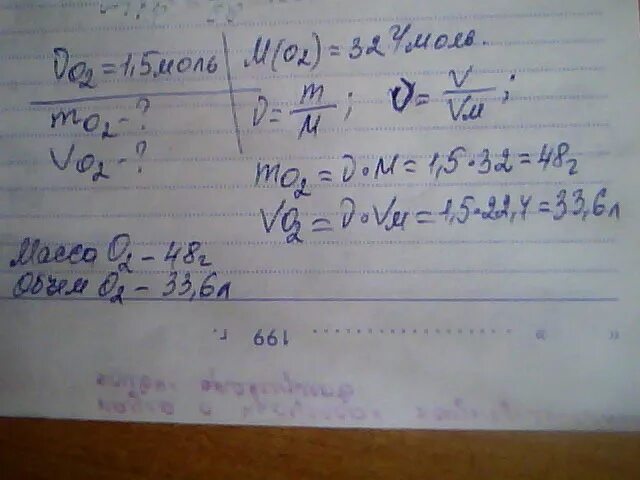 νO₂ = 1,5 моль
mO₂ - ?
VO₂ - ?
M(O₂) = 32 г/моль.
ν = m/M; ν = V/Vм;
mO₂ = ν·M = 1,5·32 = 48г
VO₂ = ν·Vм = 1,5·22,4 = 33,6л
Масса O₂ – 48г
Объем O₂ – 33,6л
" " 199 г.